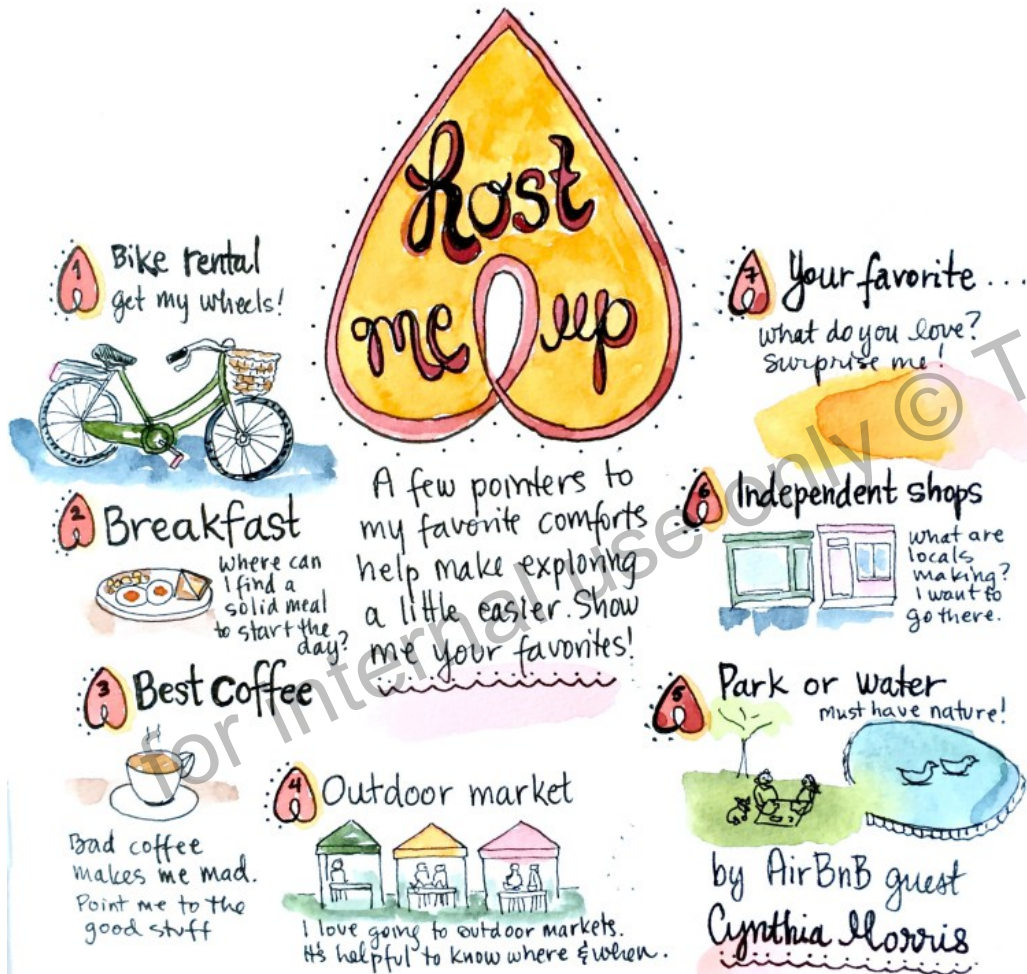 host
me up
A few pointers to
my favorite comforts
help make exploring
a little easier. Show
me your favorites!
1
Bike rental
get my wheels!
2
Breakfast
Where can
I find a
solid meal
to start the
day?
3
Best Coffee
Bad coffee
makes me mad.
Point me to the
good stuff
4
Outdoor market
I love going to outdoor markets.
It's helpful to know where & when.
5
Park or water
must have nature!
6
Independent shops
what are
locals
making?
I want to
go there.
7
Your favorite ...
what do you love?
surprise me!
by AirBnB guest
Cynthia Morris
for internal use only © T